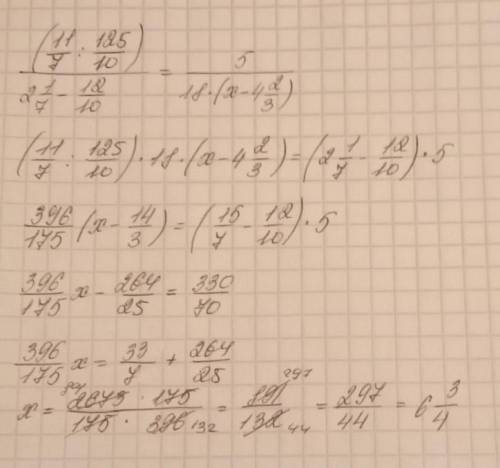 (11/7 : 125/10) / (2 1/7 - 12/10) = 5 / (18 · (x - 4 2/3))
(11/7 : 125/10) · 18 · (x - 4 2/3) = (2 1/7 - 12/10) · 5
396/175 (x - 14/3) = (15/7 - 12/10) · 5
396/175 x - 264/25 = 330/70
396/175 x = 33/7 + 264/25
x = 2673 · 175 / 175 · 396 132 = 891 297 / 132 44 = 297/44 = 6 3/4